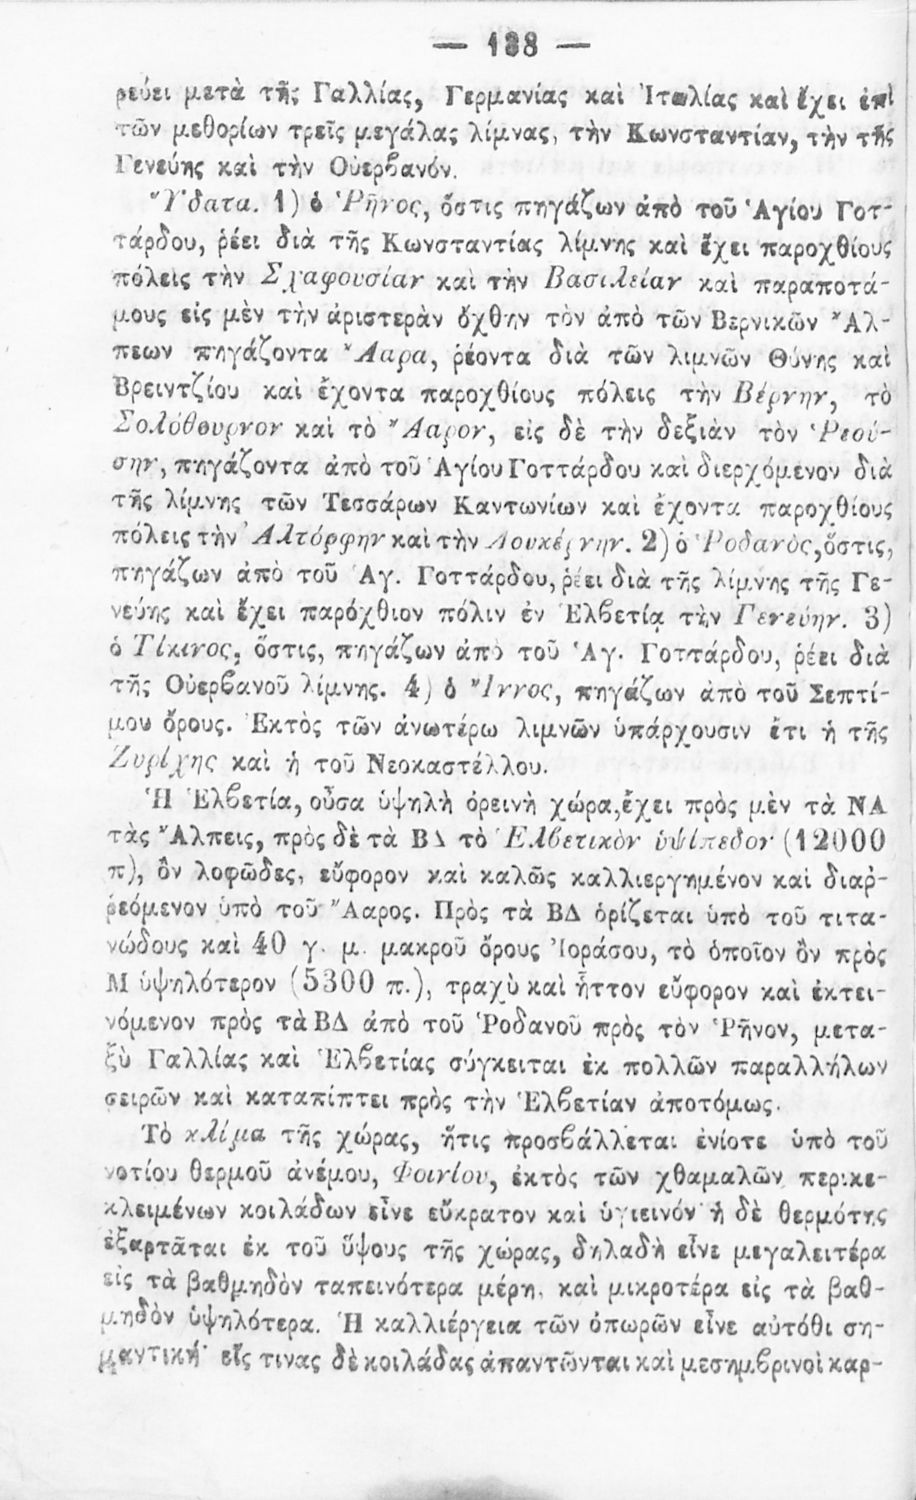 — 138 —
ρεύει μετὰ τῆς Γαλλίας, Γερμανίας καὶ Ἰταλίας καὶ ἔχει ἐπὶ
τῶν μεθορίων τρεῖς μεγάλας λίμνας, τὴν Κωνσταντίαν, τὴν τῆς
Γενεύης καὶ τὴν Οὐερϐανόν.
Ὕδατα. 1) ὁ Ῥῆνος, ὅστις πηγάζων ἀπὸ τοῦ Ἁγίου Γοτ-
τάρδου, ῥέει διὰ τῆς Κωνσταντίας λίμνης καὶ ἔχει παροχθίους
πόλεις τὴν Σχαφουσίαν καὶ τὴν Βασιλείαν καὶ παραποτά-
μους εἰς μὲν τὴν ἀριστερὰν ὄχθην τὸν ἀπὸ τῶν Βερνικῶν Ἄλ-
πεων πηγάζοντα Ἄαρα, ῥέοντα διὰ τῶν λιμνῶν Θύνης καὶ
Βρειντζίου καὶ ἔχοντα παροχθίους πόλεις τὴν Βέρνην, τὸ
Σολόθουρνον καὶ τὸ Ἄαρον, εἰς δὲ τὴν δεξιὰν τὸν Ῥεού-
σην, πηγάζοντα ἀπὸ τοῦ Ἁγίου Γοττάρδου καὶ διερχόμενον διὰ
τῆς λίμνης τῶν Τεσσάρων Καντωνίων καὶ ἔχοντα παροχθίους
πόλεις τὴν Ἀλτόρφην καὶ τὴν Λουκέρνην. 2) ὁ Ῥοδανὸς, ὅστις,
πηγάζων ἀπὸ τοῦ Ἁγ. Γοττάρδου, ῥέει διὰ τῆς λίμνης τῆς Γε-
νεύης καὶ ἔχει παρόχθιον πόλιν ἐν Ἑλϐετίᾳ τὴν Γενεύην. 3)
ὁ Τίκινος, ὅστις, πηγάζων ἀπὸ τοῦ Ἁγ. Γοττάρδου, ῥέει διὰ
τῆς Οὐερϐανοῦ λίμνης. 4) ὁ Ἴννος, πηγάζων ἀπὸ τοῦ Σεπτί-
μου ὄρους. Ἐκτὸς τῶν ἀνωτέρω λιμνῶν ὑπάρχουσιν ἔτι ἡ τῆς
Ζυρίχης καὶ ἡ τοῦ Νεοκαστέλλου.
Ἡ Ἑλϐετία, οὖσα ὑψηλὴ ὀρεινὴ χώρα, ἔχει πρὸς μὲν τὰ ΝΑ
τὰς Ἄλπεις, πρὸς δὲ τὰ ΒΔ τὸ Ἑλϐετικὸν ὑψίπεδον (12000
π), ὂν λοφῶδες, εὔφορον καὶ καλῶς καλλιεργημένον καὶ διαῤ-
ῥεόμενον ὑπὸ τοῦ Ἄαρος. Πρὸς τὰ ΒΔ ὁρίζεται ὑπὸ τοῦ τιτα-
νώδους καὶ 40 γ. μ. μακροῦ ὄρους Ἰοράσου, τὸ ὁποῖον ὂν πρὸς
Μ ὑψηλότερον (5300 π.), τραχὺ καὶ ἧττον εὔφορον καὶ ἐκτει-
νόμενον πρὸς τὰ ΒΔ ἀπὸ τοῦ Ῥοδανοῦ πρὸς τὸν Ῥῆνον, μετα-
ξὺ Γαλλίας καὶ Ἑλϐετίας σύγκειται ἐκ πολλῶν παραλλήλων
σειρῶν καὶ καταπίπτει πρὸς τὴν Ἑλϐετίαν ἀποτόμως.
Τὸ κλίμα τῆς χώρας, ἥτις προσϐάλλεται ἐνίοτε ὑπὸ τοῦ
νοτίου θερμοῦ ἀνέμου, Φοινίου, ἐκτὸς τῶν χθαμαλῶν περικε-
κλειμένων κοιλάδων εἶνε εὔκρατον καὶ ὑγιεινόν· ἡ δὲ θερμότης
ἐξαρτᾶται ἐκ τοῦ ὕψους τῆς χώρας, δηλαδὴ εἶνε μεγαλειτέρα
εἰς τὰ βαθμηδὸν ταπεινότερα μέρη, καὶ μικροτέρα εἰς τὰ βαθ-
μηδὸν ὑψηλότερα. Ἡ καλλιέργεια τῶν ὀπωρῶν εἶνε αὐτόθι ση-
μαντική· εἴς τινας δὲ κοιλάδας ἀπαντῶνται καὶ μεσημϐρινοὶ καρ-